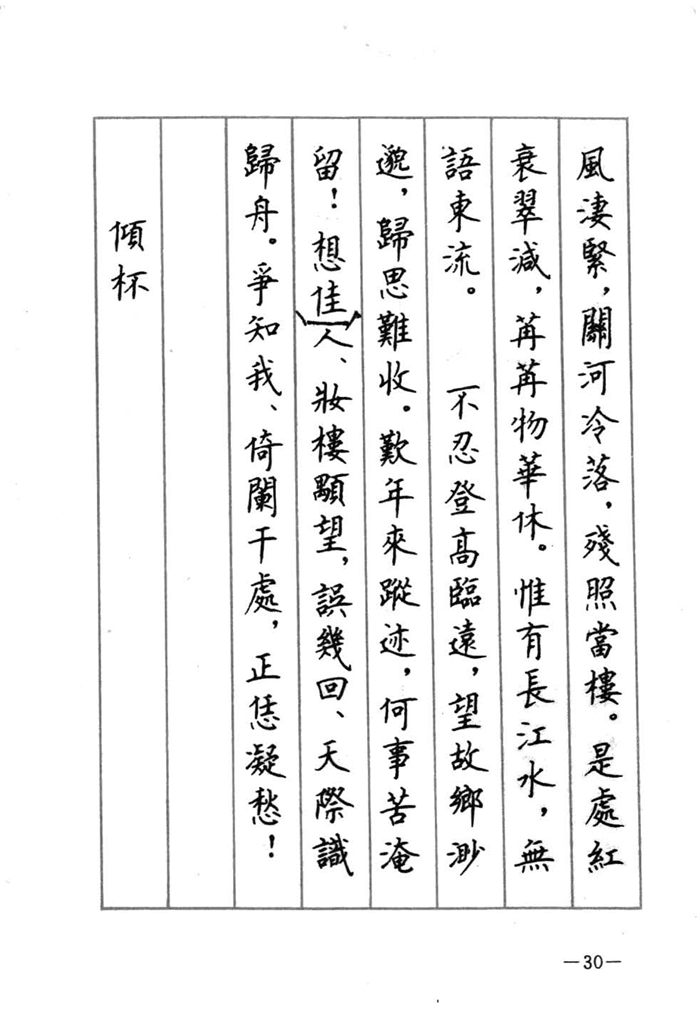 風淒緊，關河冷落，殘照當樓。是處紅
衰翠減，苒苒物華休。惟有長江水，無
語東流。　　不忍登高臨遠，望故鄉渺
邈，歸思難收。歎年來蹤迹，何事苦淹
留！想佳人、妝樓顒望，誤幾回、天際識
歸舟。爭知我、倚闌干處，正恁凝愁！
傾杯
—30—